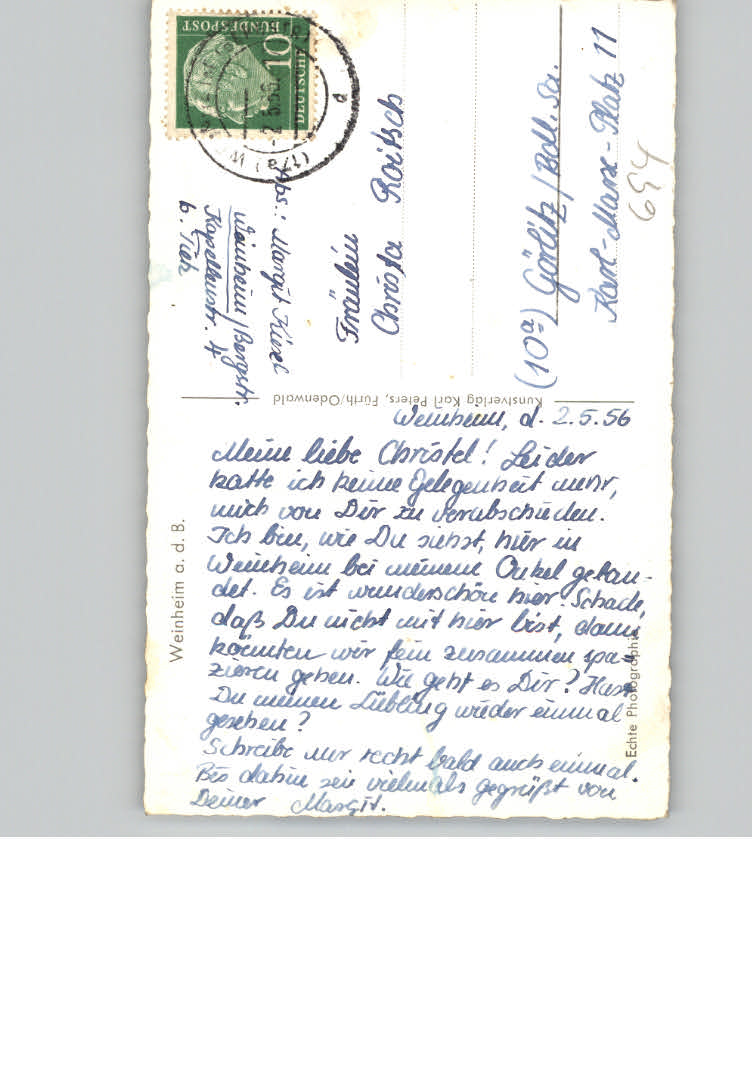 DEUTSCHE
BUNDESPOST
10
(17a) W
-2.5.56
a
Abs.: Margit
Weinheim/Bergstr.
Kapellenstr. 4
b.
Fräulein
Christa Roitsch
(10a) Görlitz/
Karl-Marx-Platz 11
694
Kunstverlag Karl Peters, Fürth/Odenwald
Weinheim a. d. B.
Echte Photographie
Weinheim, d. 2.5.56
Meine liebe Christel! Leider
hatte ich keine Gelegenheit mehr,
mich von Dir zu verabschieden.
Ich bin, wie Du siehst, hier in
Weinheim bei meinem Onkel gelan-
det. Es ist wunderschön hier. Schade,
daß Du nicht mit hier bist, dann
könnten wir fein zusammen spa-
zieren gehen. Wie geht es Dir? Hast
Du meinen Liebling wieder einmal
gesehen?
Schreibe mir recht bald auch einmal.
Bis dahin sei vielmals gegrüßt von
Deiner Margit.